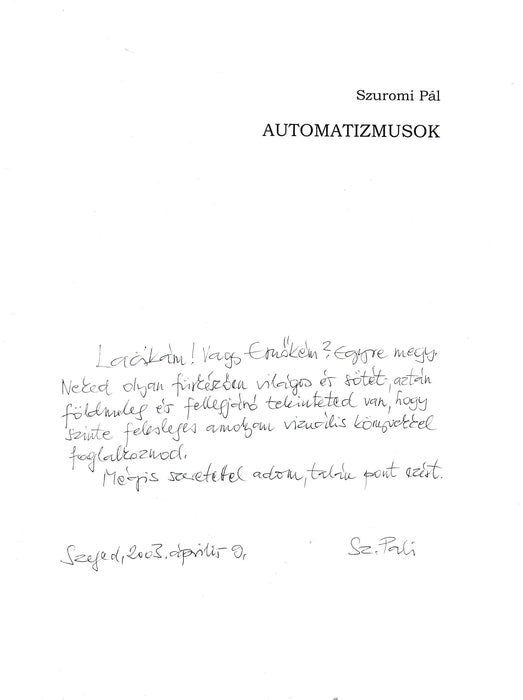 Szuromi Pál
AUTOMATIZMUSOK
Lacikám! Vagy Ernőkém? Egyre megy.
Neked olyan fürkészően világos és sötét, aztán
földmeleg és fellegjáró tekinteted van, hogy
szinte felesleges amolyan vizuális könyvekkel
foglalkoznod.
Mégis szeretettel adom, talán pont ezért.
Szeged, 2003. április 9. Sz. Pali